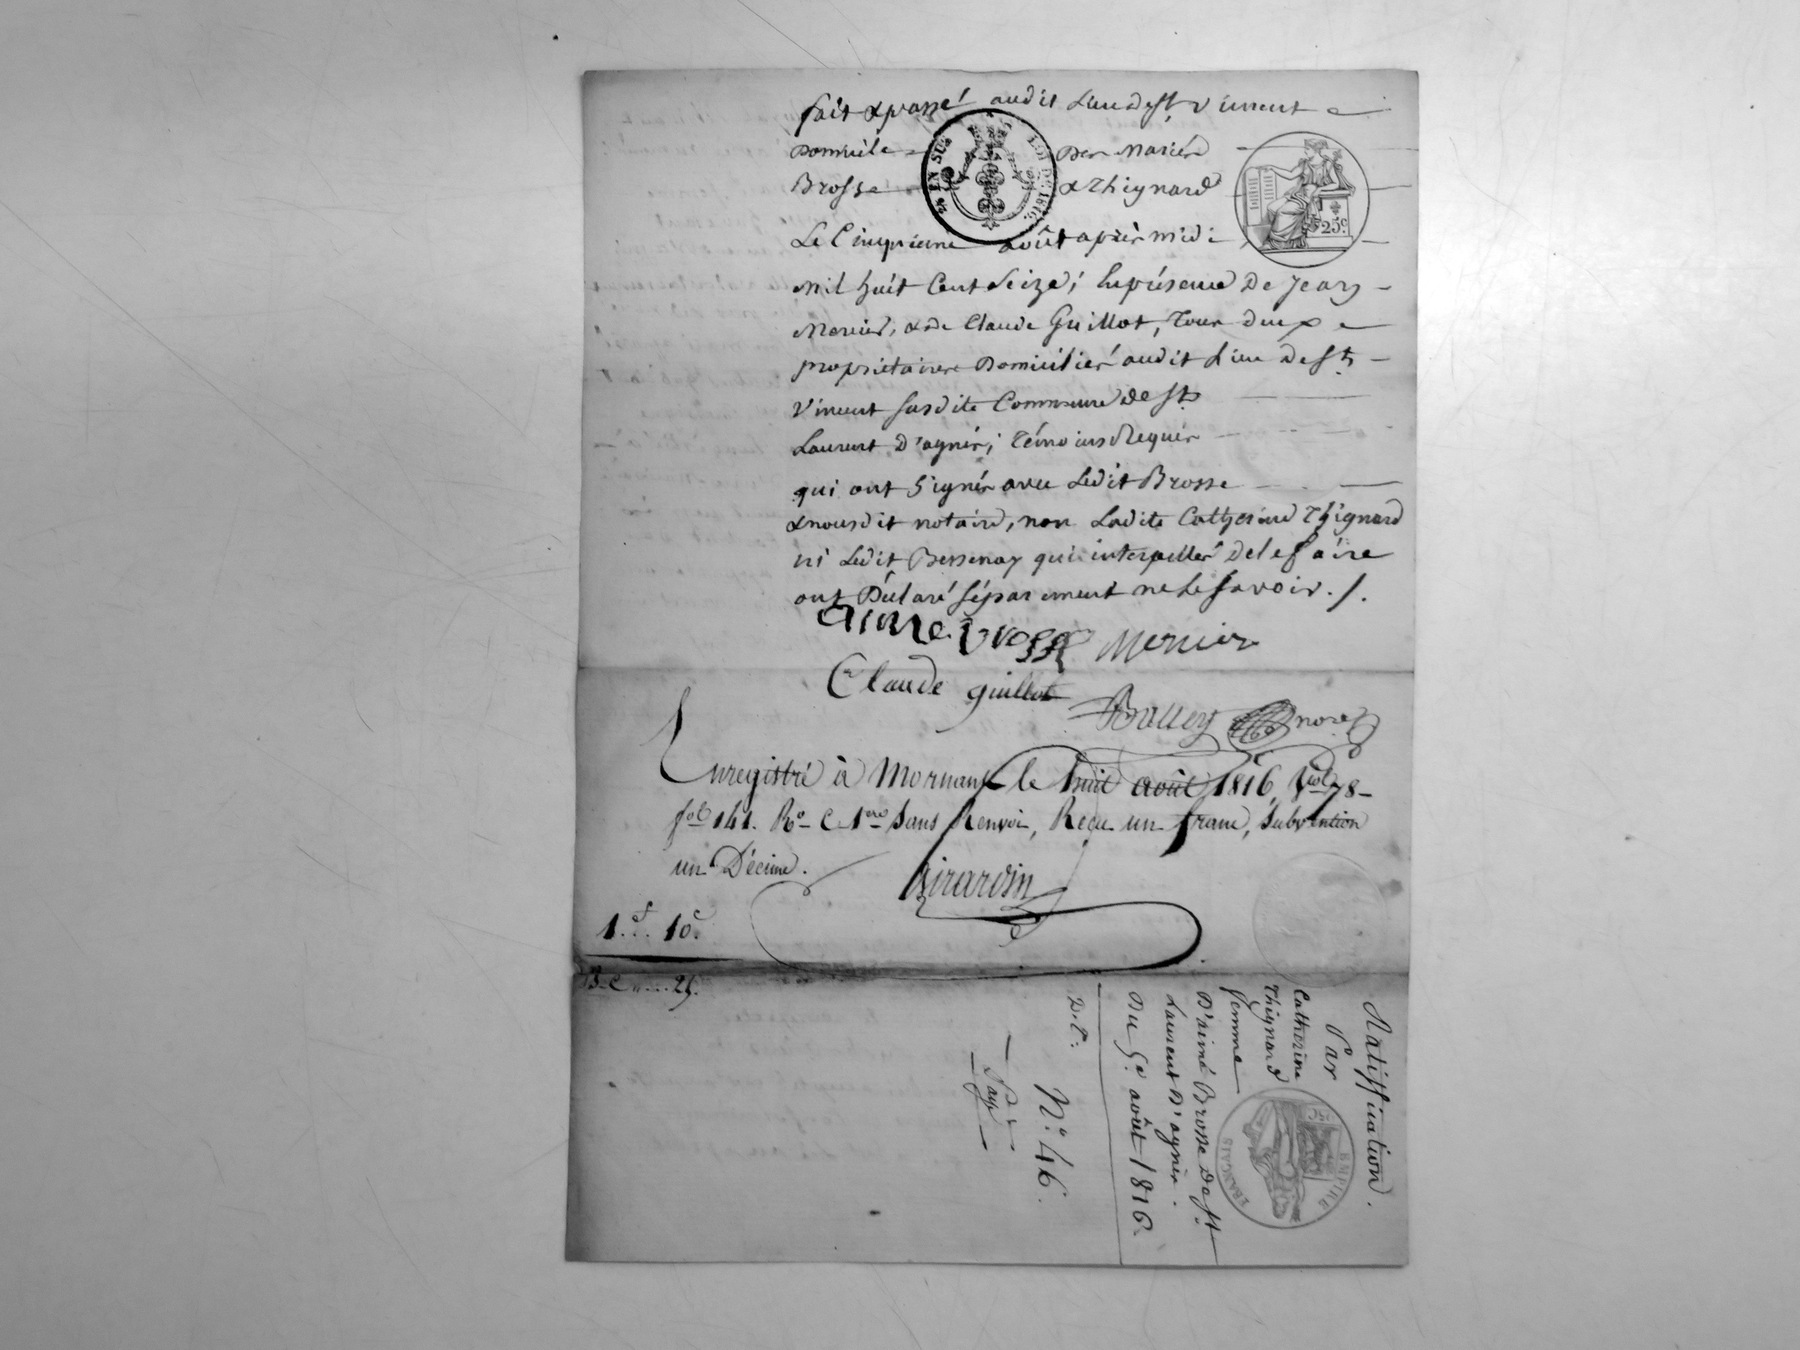 fait & passé audit Lieu de St. Vincent
Domicile Des Mariés
Brosse & Thignard
Le Cinquieme août après midi
mil huit Cent Seize; En présence De Jean
Mercier, & De Claude Guillot, Tous deux
propriétaires Domiciliés audit Lieu De St.
Vincent Susdite Commune De St.
Laurent D'agnés; Témoins Requis
qui ont Signés avec Ledit Brosse
& nousdit notaire, non Ladite Catherine Thignard
ni Ledit Bessenay qui interpellés De le faire
ont Déclaré Séparément ne le Savoir ./.
EN SUS
LOI DE 1816.
25c
aime Brosse Mercier
Claude guillot
nore
Enregistré à Mornant le huit août 1816, Vol 78
fol 141. Ro C 1ere Sans Renvoi, Reçu un franc, Subvention
un Décime.
Girardin
1f.. 10c.
25.
Ratiffication.
Par
Catherine
Thignard
femme
D'aimé Brosse De St.
Laurent D'agnés.
Du 5e. août 1816
N.o 46.
Payé
EMPIRE
FRANÇAIS